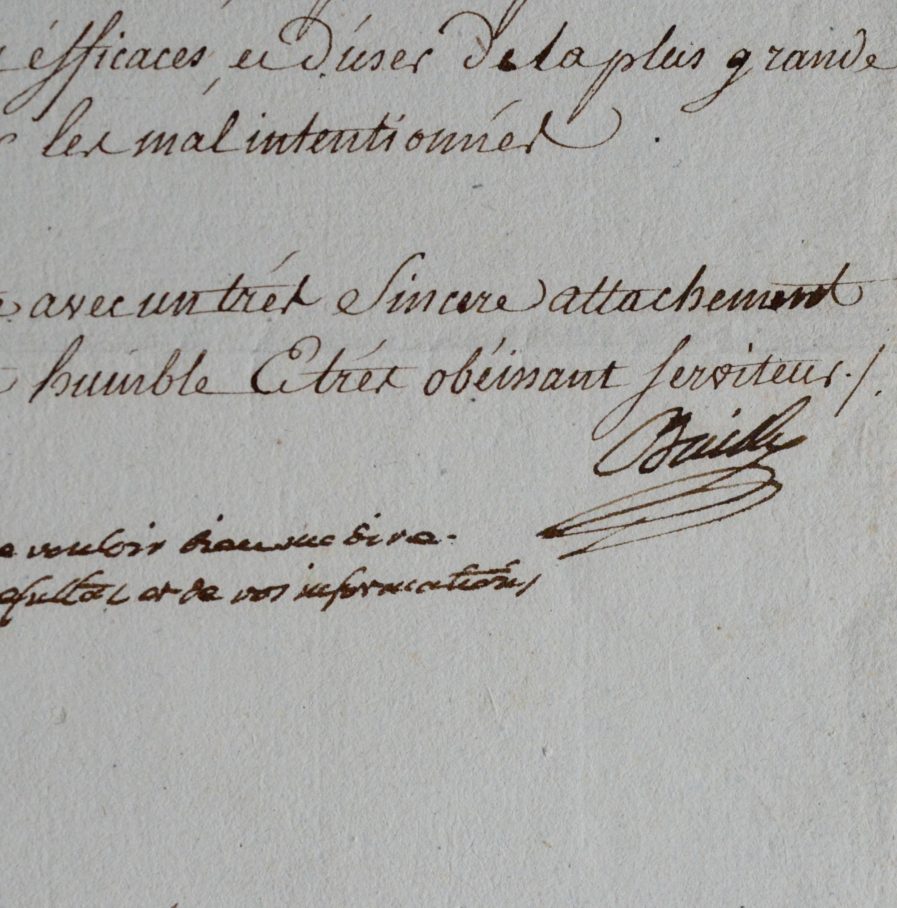 éfficaces, et d'user de la plus grande
les mal intentionnés
avec un trés Sincere attachement
humble Et trés obéissant serviteur ./.
Bailly
vouloir bien me dire
et de vos informations